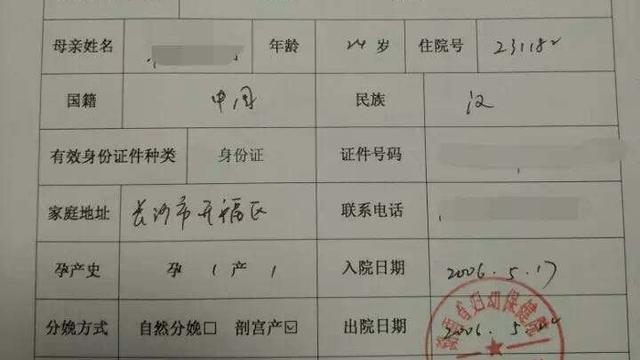 母亲姓名 年龄 24岁 住院号 231182
国籍 中国 民族 汉
有效身份证件种类 身份证 证件号码
家庭地址 长沙市开福区 联系电话
孕产史 孕1产1 入院日期 2006.5.17
分娩方式 自然分娩□ 剖宫产☑ 出院日期 2006.5.
省妇幼保健院